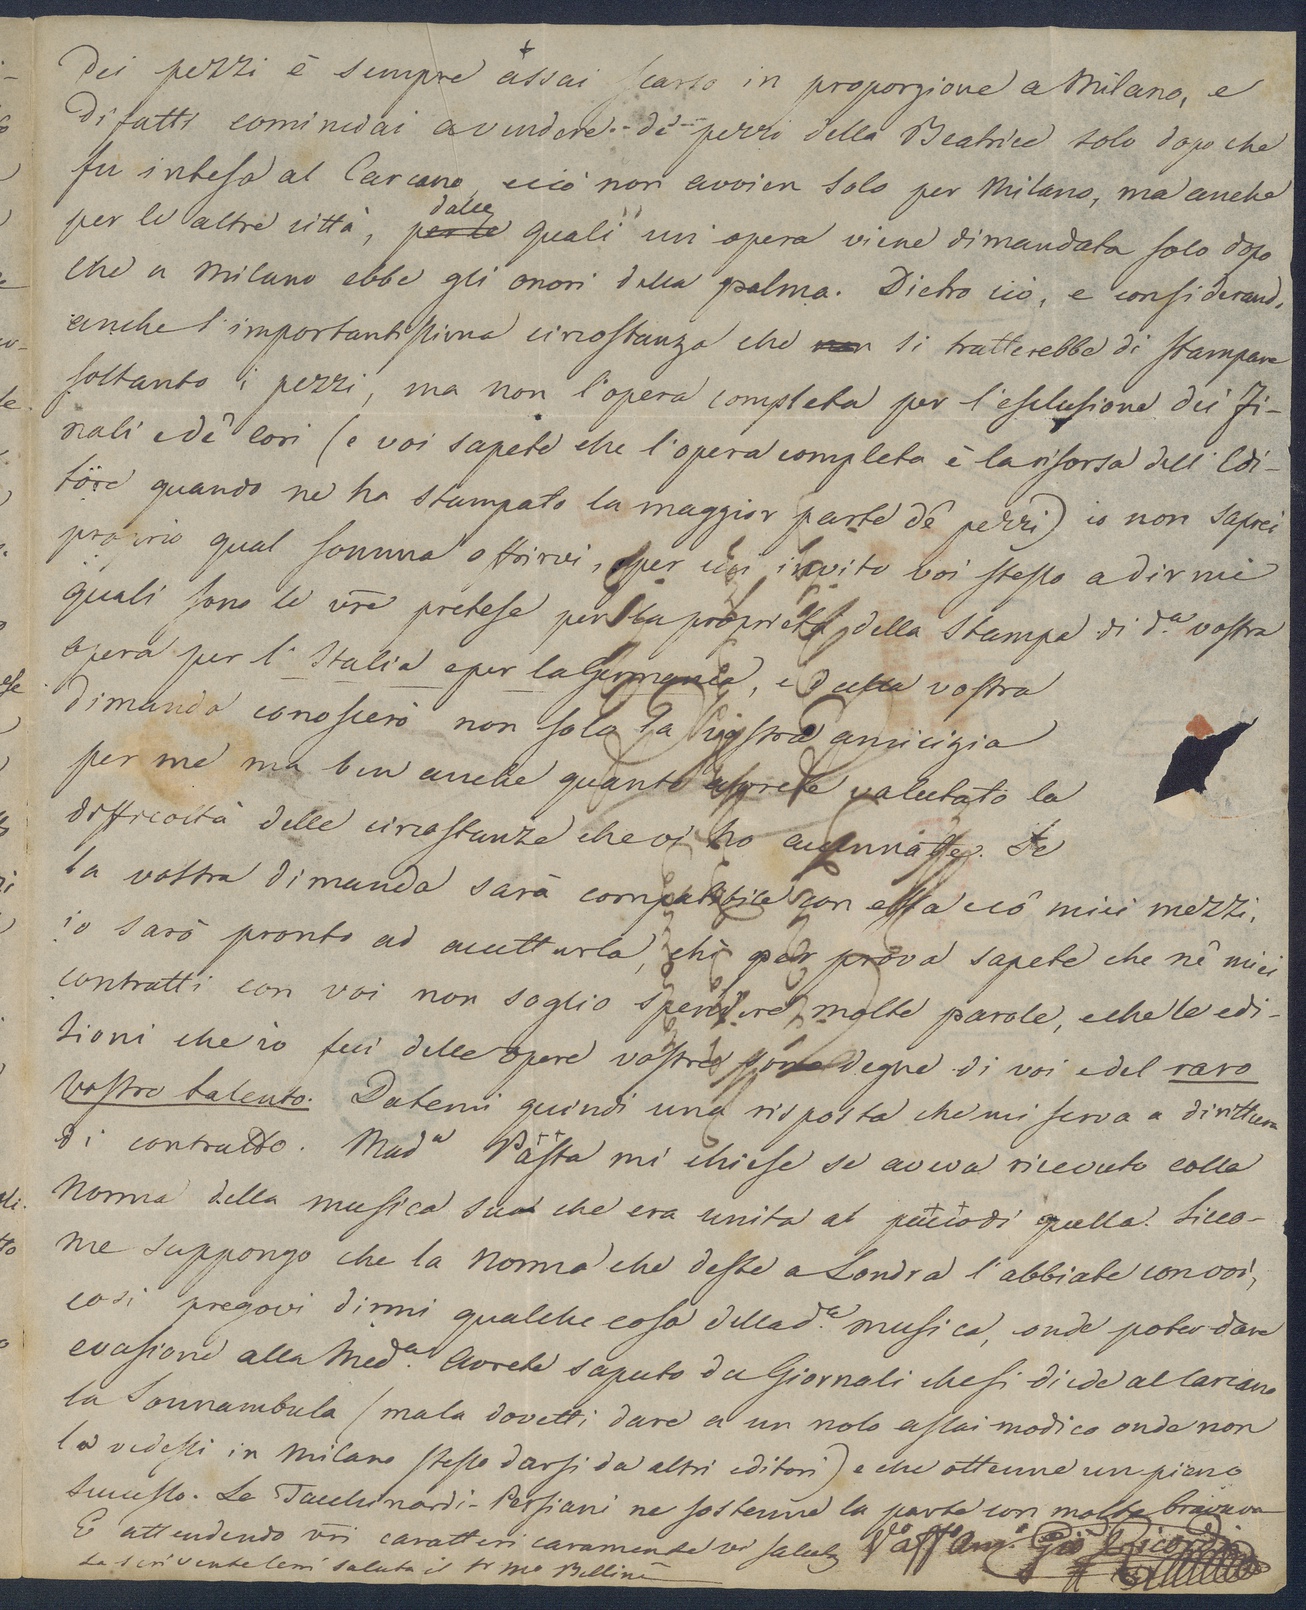 dei pezzi è sempre assai scarso in proporzione a Milano, e
difatti cominciai a vendere de' pezzi della Beatrice solo dopo che
fu intesa al Carcano, e ciò non avvien solo per Milano, ma anche
per le altre città, dalle
per le quali un'opera viene dimandata solo dopo
che a Milano ebbe gli onori della palma. Dietro ciò, e considerand.
anche l'importantissima circostanza che non si tratterebbe di stampare
soltanto i pezzi, ma non l'opera completa per l'esclusione dei Fi-
nali e de' Cori (e voi sapete che l'opera completa è la risorsa dell'Edi-
tore quando ne ha stampato la maggior parte de' pezzi) io non saprei
proprio qual somma offrirvi, per cui invito voi stesso a dirmi
quali sono le vre pretese per la proprietà della stampa di d.a vostra
opera per l'Italia e per la Germania, e dalla vostra
dimanda conoscerò non solo la vostra amicizia
per me ma ben anche quanto avrete valutato la
difficoltà delle circostanze che vi ho accennate. Se
la vostra dimanda sarà compatibile con essa e co' miei mezzi,
io sarò pronto ad accettarla, chè per prova sapete che ne' miei
contratti con voi non soglio spendere molte parole, e che le edi-
zioni che io feci delle opere vostre sono degne di voi e del raro
vostro talento. Datemi quindi una risposta che mi serva a dirittura
di contratto. Mad.a Pasta mi chiese se aveva ricevuto colla
Norma della musica sua che era unita al pacco di quella. Sicco-
me suppongo che la Norma che deste a Londra l'abbiate con voi,
così pregovi dirmi qualche cosa della d.a musica, onde poter dare
evasione alla Med.a Avrete saputo da Giornali che si diede al Carcano
la Sonnambula (ma la dovetti dare a un nolo assai modico onde non
la vedessi in Milano stesso darsi da altri editori) e che ottenne un pieno
successo. La Tacchinardi-Persiani ne sostenne la parte con molta bravura
E attendendo vri caratteri caramente vi saluto V.o Aff.mo Am.o Gio Ricordi
Lo scrivente saluta il Mo Bellini